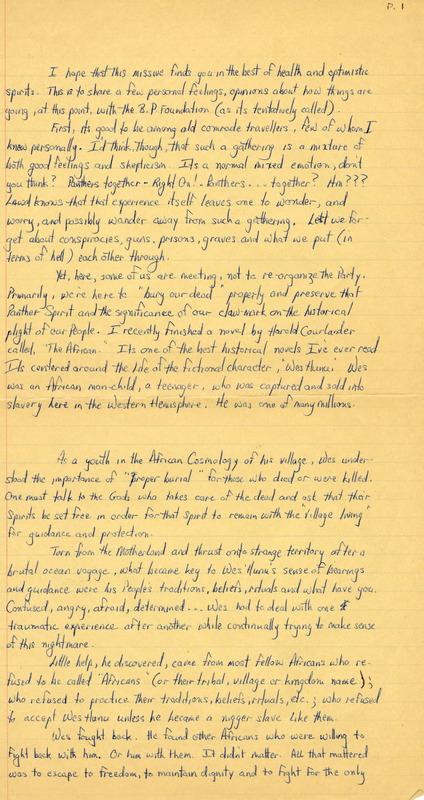 P. 1
I hope that this missive finds you in the best of health and optimistic
spirits. This is to share a few personal feelings, opinions about how things are
going, at this point, with the B.P. Foundation (as its tentatively called).
First, its good to be among old comrade travellers, few of whom I
know personally. I'd think. Though, that such a gathering is a mixture of
both good feelings and skepticism. Its a normal mixed emotion, don't
you think? Panthers together - Right On!. Panthers... together? Hn???
Lawd knows that that experience itself leaves one to wonder, and
worry, and possibly wander away from such a gathering. Lest we for-
get about conspiracies, guns, prisons, graves and what we put (in
terms of hell) each other through.
Yet, here, some of us are meeting, not to re-organize the Party.
Primarily, we're here to "bury our dead" properly and preserve that
Panther Spirit and the significance of our claw-mark on the historical
plight of our People. I recently finished a novel by Harold Courlander
called, "The African." Its one of the best historical novels I've ever read
Its centered around the life of the fictional character, Wes Hunu. Wes
was an African man-child, a teenager, who was captured and sold into
slavery here in the Western Hemisphere. He was one of many millions.
As a youth in the African Cosmology of his village, Wes under-
stood the importance of "proper burial" for those who died or were killed.
One must talk to the Gods who takes care of the dead and ask that their
Spirits be set free in order for that Spirit to remain with the "village living"
for guidance and protection.
Torn from the Motherland and thrust onto strange territory after a
brutal ocean voyage, what became key to Wes Hunu's sense of bearings
and guidance were his People's traditions, beliefs, rituals and what have you.
Confused, angry, afraid, determined... Wes had to deal with one
traumatic experience after another while continually trying to make sense
of this nightmare.
Little help, he discovered, came from most fellow Africans who re-
fused to be called 'Africans' (or their tribal, village or kingdom name);
who refused to practice their traditions, beliefs, rituals, etc.; who refused
to accept Wes Hunu unless he became a nigger slave like them.
Wes fought back. He found other Africans who were willing to
fight back with him. Or him with them. It didn't matter. All that mattered
was to escape to freedom, to maintain dignity and to fight for the only